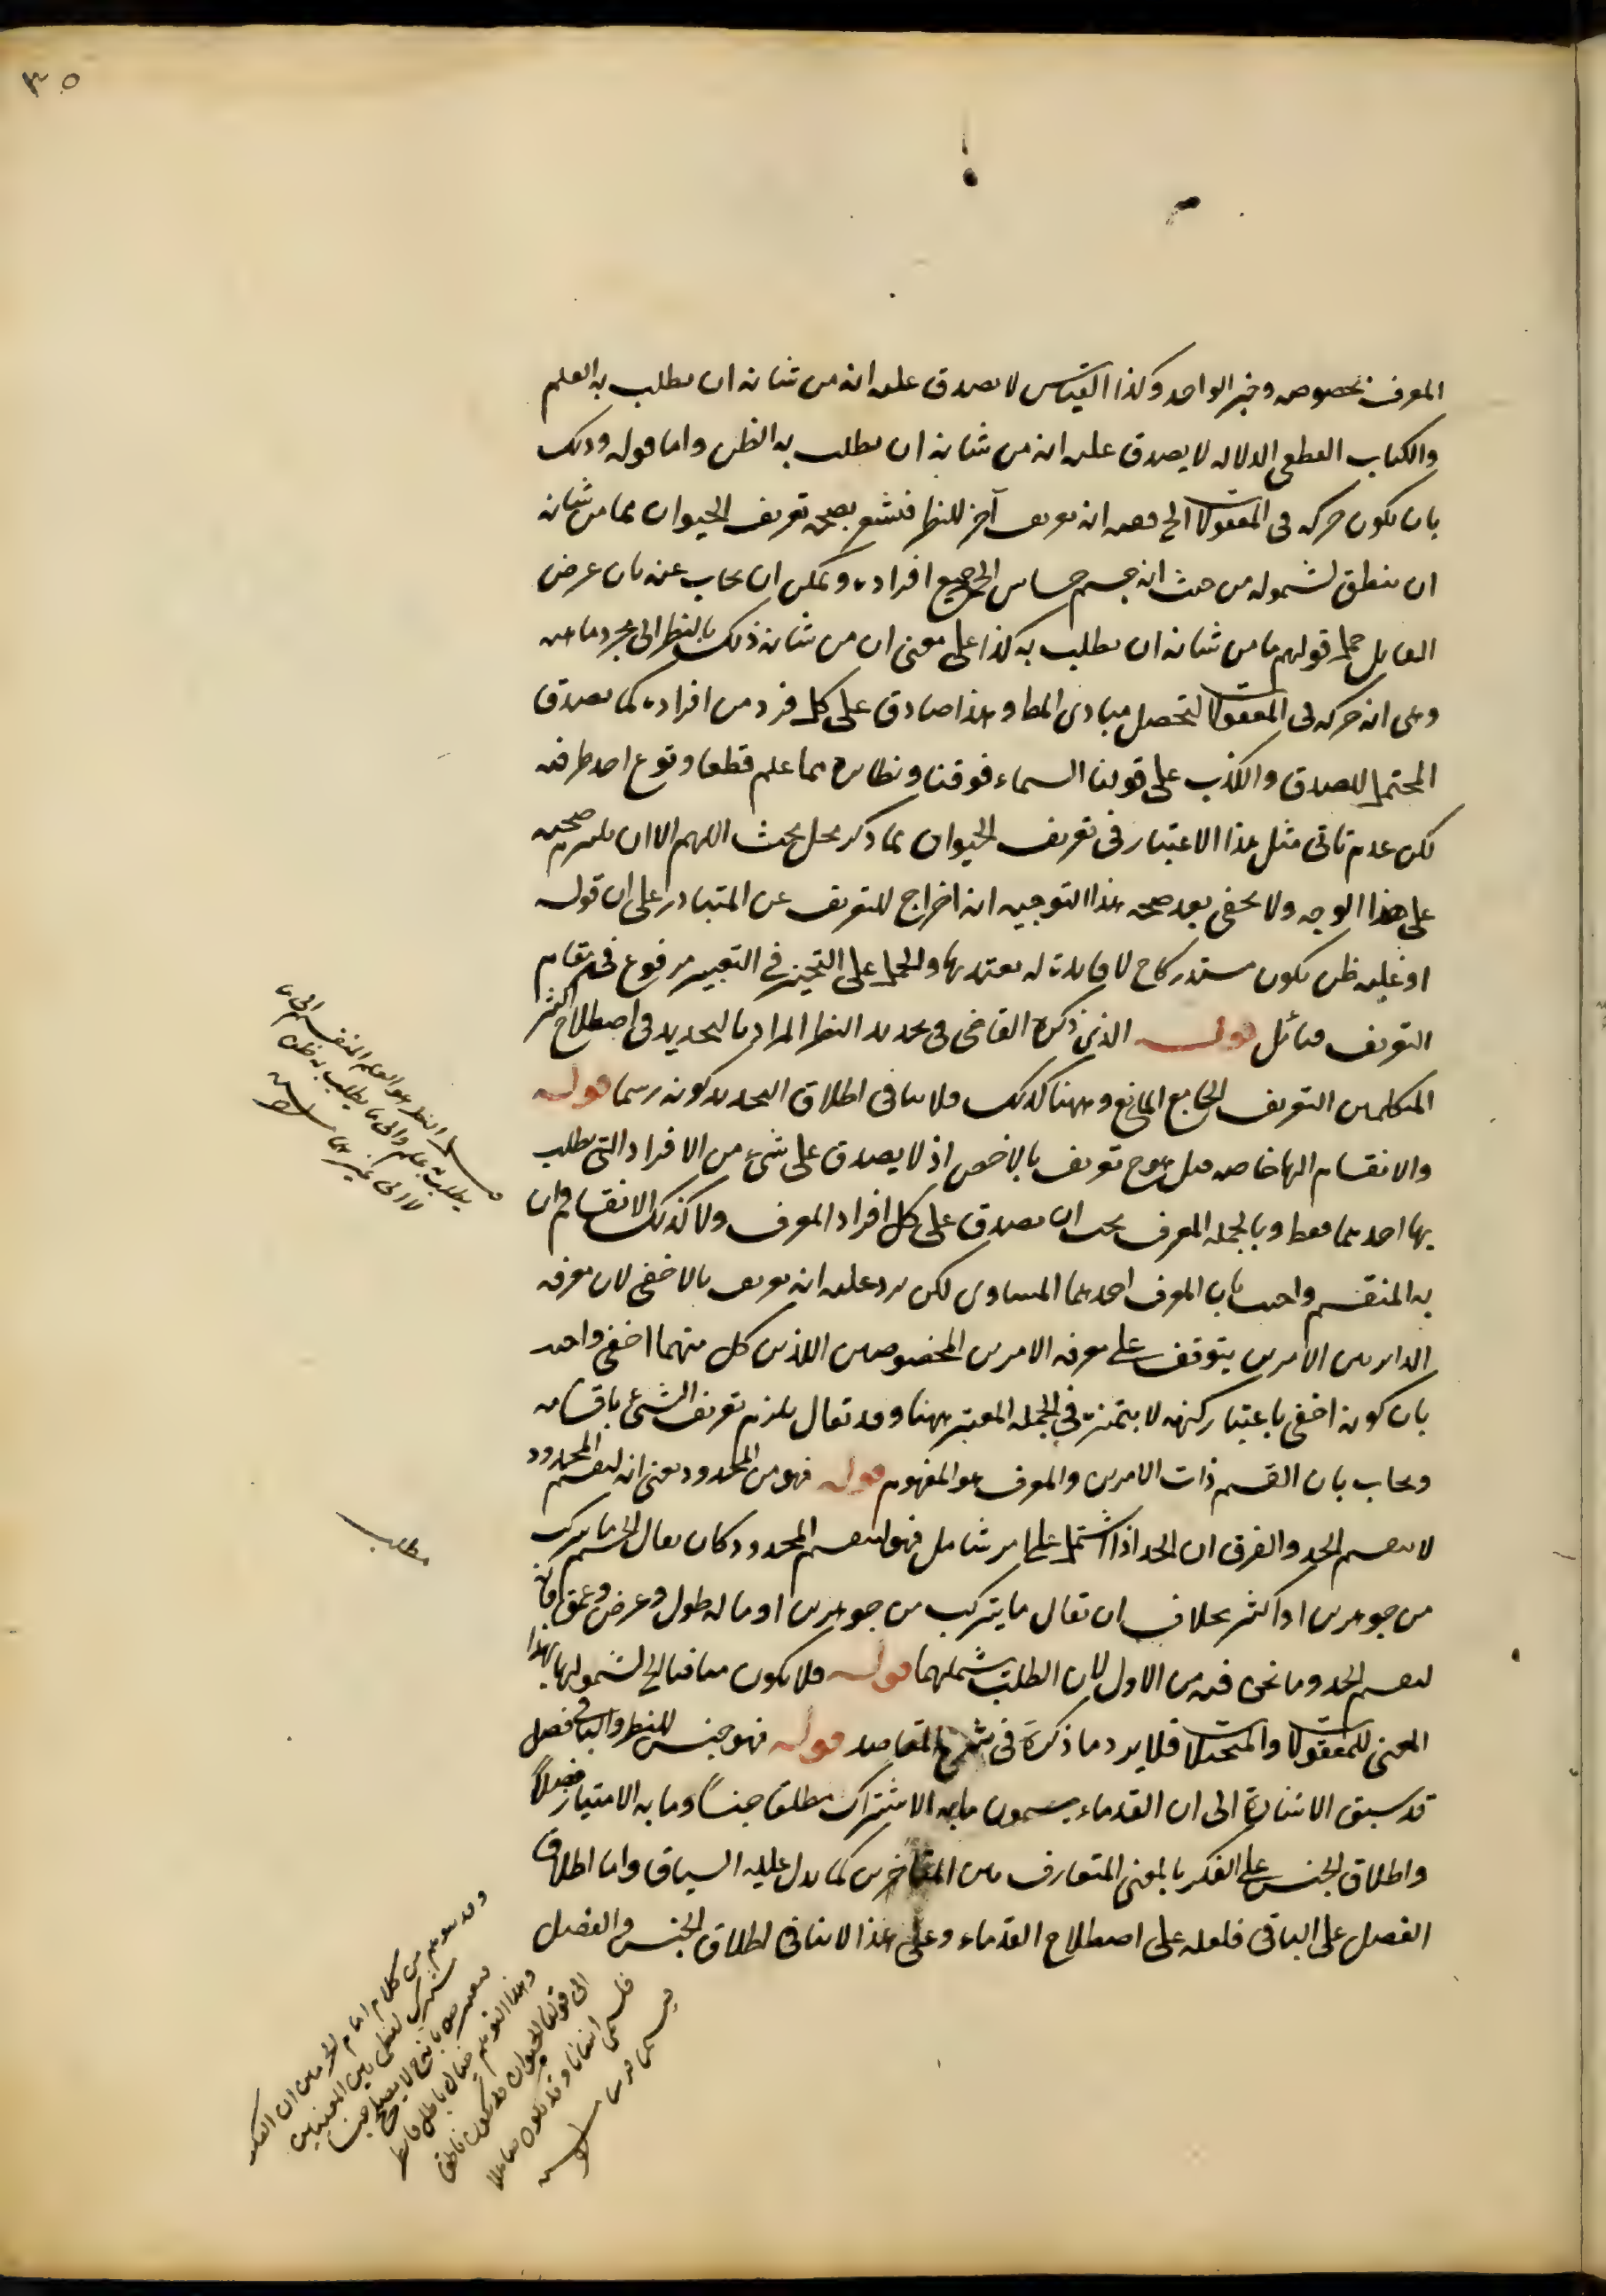 ٣٥
المعرف بخصوصه وخبر الواحد وكذا القياس لا يصدق عليه انه من شانه ان يطلب به العلم
والكتاب القطعي الدلاله لا يصدق عليه انه من شانه ان يطلب به الظن واما قوله وذلك
بان يكون حركه في المعقولات الخ ففيه انه تعريف آخر للنظر فتشنيع بصحة تعريف الحيوان بما من شانه
ان ينطق لشموله من حيث انه جسم حساس الخ جميع افراده ويمكن ان يجاب عنه بان غرض
القايل حمل قولهم ما من شانه ان يطلب به كذا على معنى ان من شانه ذلك بالنظر الى مجرد ماهيته
وهي انه حركه في المعقولات لتحصيل مبادي المط وهذا صادق على كل فرد من افراده كما يصدق
المحتمل للصدق والكذب على قولنا السماء فوقنا ونظايره مما علم قطعا وقوع احد طرفيه
لكن عدم تاتي مثل هذا الاعتبار في تعريف الحيوان بما ذكر محل بحث اللهم الا ان يلتزم صحته
على هذا الوجه ولا يخفى بعد صحة هذا التوجيه انه اخراج للتعريف عن المتبادر على ان قوله
او غلبه ظن يكون مستدركا ح لا فايدة له يعتد بها والحمل على التخيير في التعبير مرفوع في مقام
التعريف فتأمل قوله الذي ذكره القاضي في تحديد النظر المراد بالتحديد في اصطلاح اكثر
المتكلمين التعريف الجامع المانع وههنا كذلك فلا ينافي اطلاق التحديد كونه رسما قوله
والانقسام اليها خاصه قيل هو ح تعريف بالاخص اذ لا يصدق على شيء من الافراد التي يطلب
بها احدهما فقط وبالجمله المعرف يجب ان يصدق على كل افراد المعرف ولا كذلك الانقسام وان
به المنقسم واجيب بان المعرف احدهما المساوي لكن يرد عليه انه تعريف بالاخفى لان معرفه
الداير بين الامرين يتوقف على معرفه الامرين المخصوصين اللذين كل منهما اخفى واجيب
بان كونه اخفى باعتبار كنهه لا بتميزه في الجمله المعتبر ههنا وقد يقال يلزم تعريف الشيء باقسامه
ويجاب بان القسم ذات الامرين والمعرف هو المفهوم قوله فهو من المحدود يعني انه لتقسيم المحدود
لا لتقسيم الحد والفرق ان الحد اذا اشتمل على امر شامل فهو لتقسيم المحدود كان يقال الجسم ما يتركب
من جوهرين او اكثر بخلاف ان يقال ما يتركب من جوهرين او ما له طول وعرض وعمق فانه
لتقسيم الحد وما نحن فيه من الاول لان الطلب يشملهما قوله فلا يكون منافيا الخ لشمولها بهذا
المعنى للمعقولات والمتخيلات فلا يرد ما ذكره في شرح المقاصد قوله فهو جنس للنظر والباقي فصل
قد سبق الاشارة الى ان القدماء يسمون ما به الاشتراك مطلقا جنسا وما به الامتياز فصلا
واطلاق الجنس على الفكر بالمعنى المتعارف بين المتاخرين كما يدل عليه السياق واما اطلاق
الفصل على الباقي فلعله على اصطلاح القدماء وعلى هذا لا ينافي اطلاق الجنس والفصل
النظر هو العلم المنقسم الى ما
يطلب به علم والى ما يطلب به ظن
لا الى غيرهما
مطلب
وقد توهم من كلام امام الحرمين ان الفكر
مشترك لفظي بين المعنيين
فلا يصلح جنسا
وهذا التوهم خيال باطل
الى قولنا الحيوان قد يكون ناطقا
فيسمى انسانا وقد يكون صاهلا
فيسمى فرسا